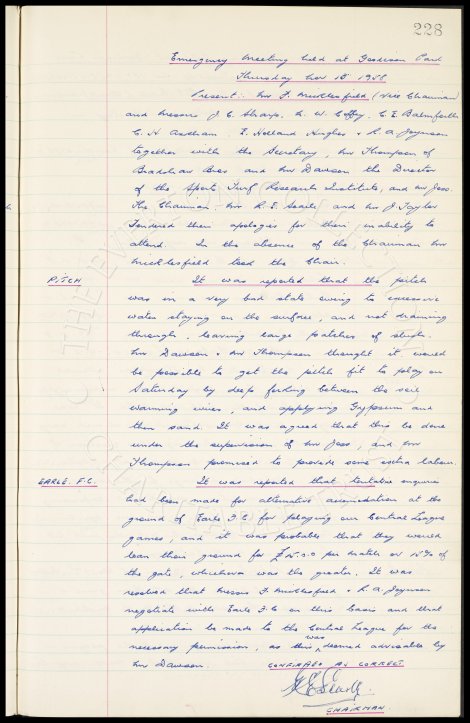 228
Emergency Meeting held at Goodison Park
Thursday Nov 1958
Present: Mr F. Micklesfield (Vice Chairman)
and Messrs J. C. Sharp, R. W. Coffey, C. E. Balmforth
C. H. Askham, E. Holland Hughes & R. A. Joynson
together with the Secretary, Mr Thompson of
Bradshaw Bros and Mr Dawson the Director
of the Sports Turf Research Institute, and Mr Joss.
The Chairman Mr R. E. Searle and Mr J. Taylor
tendered their apologies for their inability to
attend. In the absence of the Chairman Mr
Micklesfield took the Chair.
PITCH
It was reported that the pitch
was in a very bad state owing to excessive
water staying on the surface, and not draining
through, leaving large patches of slush.
Mr Dawson & Mr Thompson thought it would
be possible to get the pitch fit to play on
Saturday by deep forking between the soil
warming wires, and applying Gypsum and
then sand. It was agreed that this be done
under the supervision of Mr Joss, and Mr
Thompson promised to provide some extra labour.
EARLE. F.C.
It was reported that tentative enquiries
had been made for alternative accomodation at the
ground of Earle F.C for playing our Central League
games, and it was probable that they would
loan their ground for per match or % of
the gate, whichever was the greater. It was
resolved that Messrs F. Micklesfield & R. A. Joynson
negotiate with Earle F.C on this basis and that
application be made to the Central League for the
necessary permission, as this was deemed advisable by
Mr Dawson.
CONFIRMED AS CORRECT
R E Searle.
CHAIRMAN.
THE EVERTON COLLECTION
CHARITABLE TRUST